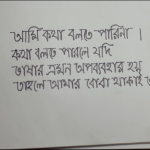 আমি কথা বলতে পারিনা ।
কথা বলতে পারলে যদি
ভাষার এমন অপব্যবহার হয়
তাহলে আমার বোবা থাকাই